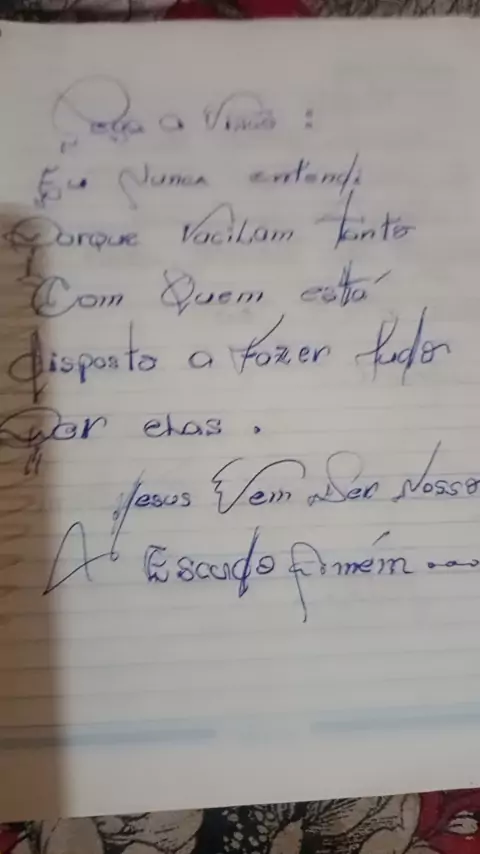 Pega a Visão :
Eu Nunca entendi
Porque Vacilam tanto
Com Quem está
disposto a fazer tudo
Por elas .
Jesus Vem Ser Nosso
Escudo Amém ...